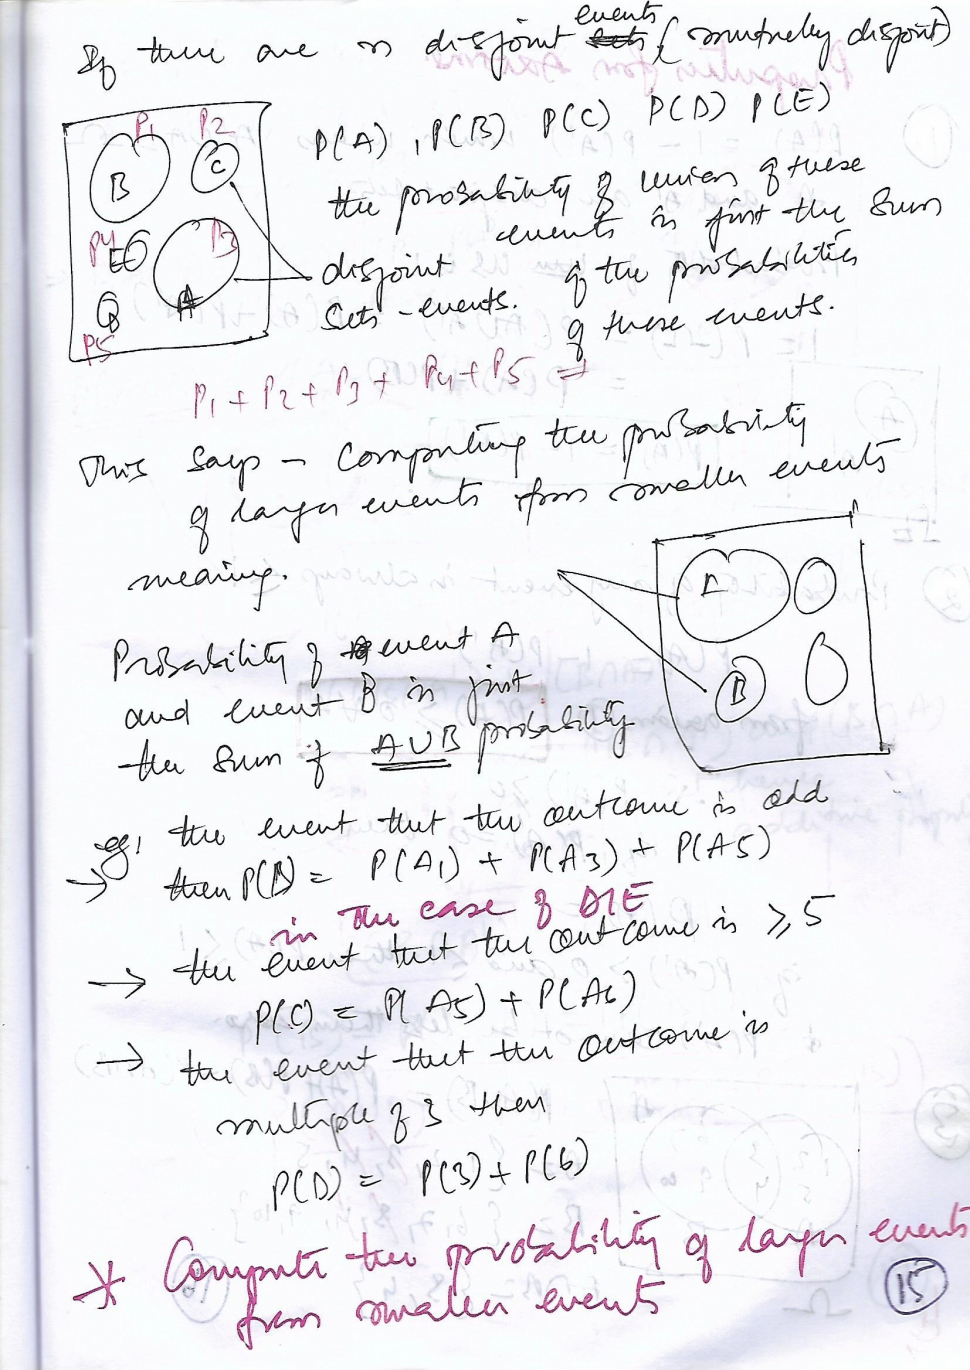 If there are n disjoint events (mutually disjoint)
P(A), P(B) P(C) P(D) P(E)
P1 P2
B C
the probability of union of these
events is just the sum
P4 E P3
disjoint of the probabilities
A sets - events. of these events.
P5
P1 + P2 + P3 + P4 + P5 =
This says - Computing the probability
of larger events from smaller events
meaning.
Probability of event A
and event B is just
the sum of A∪B probability
B
eg, the event that the outcome is odd
→ then P(B) = P(A1) + P(A3) + P(A5)
in the case of DIE
→ the event that the outcome is ⩾ 5
P(C) = P(A5) + P(A6)
→ the event that the outcome is
multiple of 3 then
P(D) = P(3) + P(6)
* Compute the probability of larger events
from smaller events
15